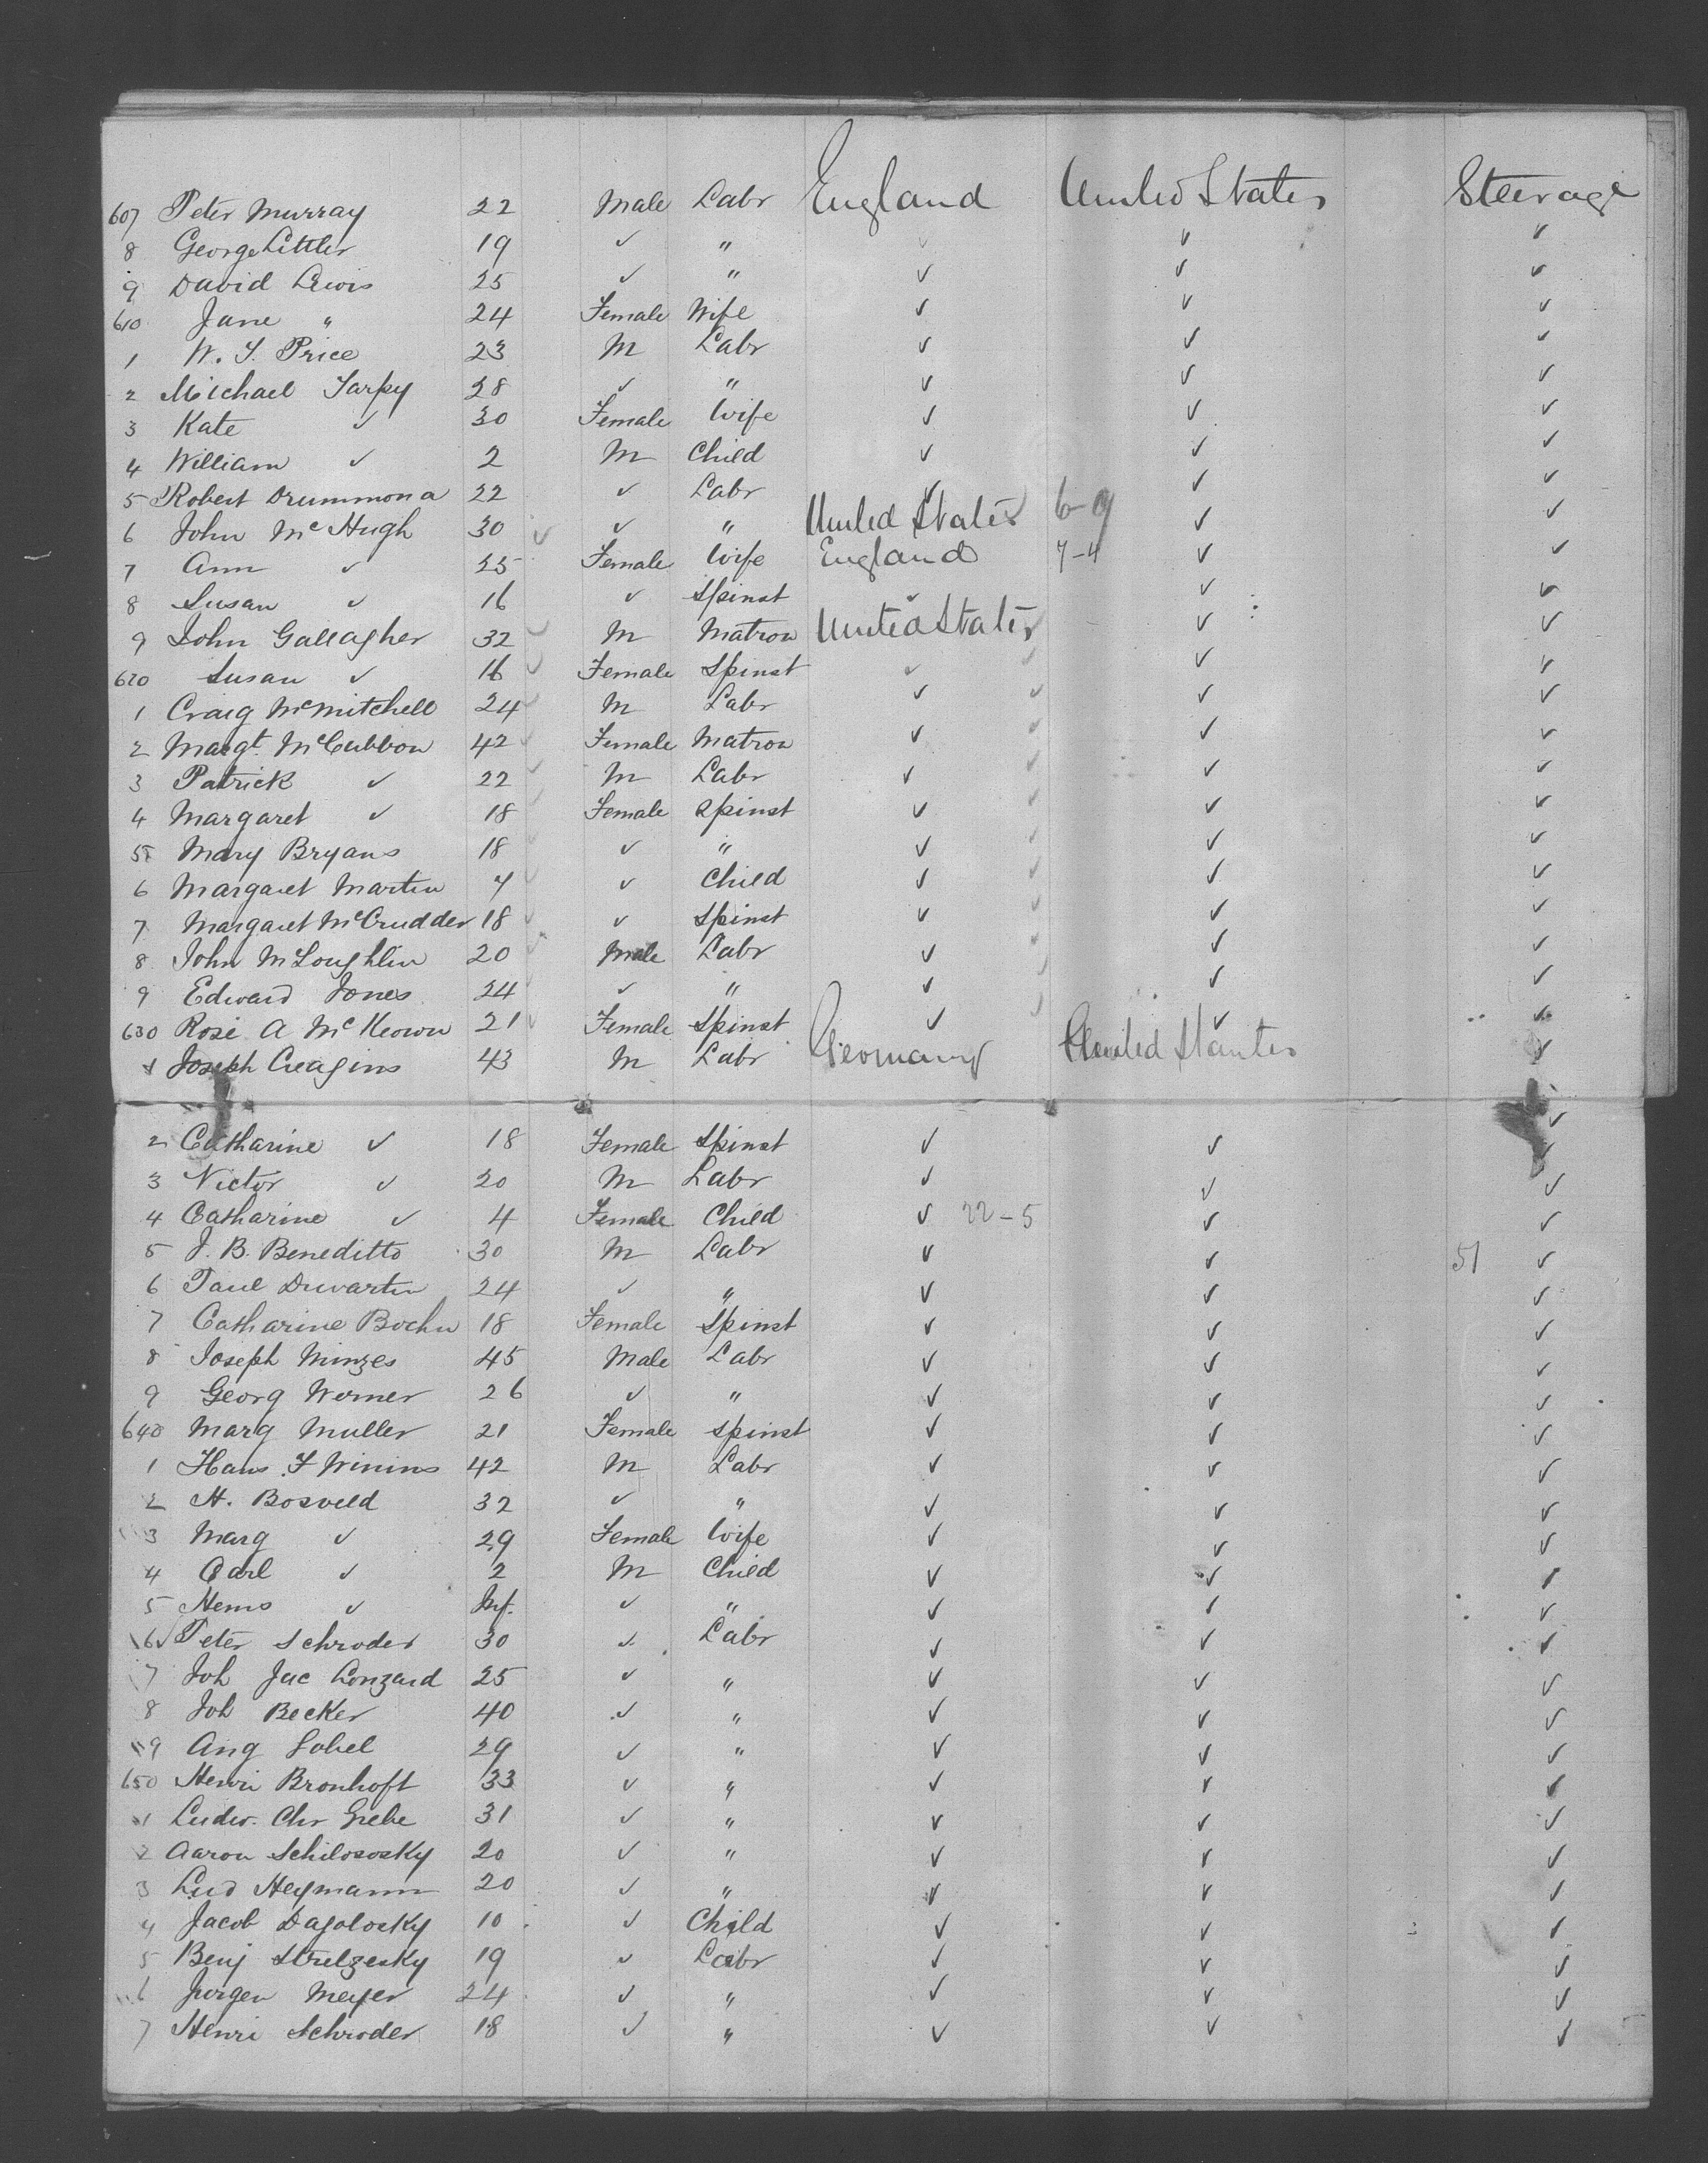 607 Peter Murray 22 Male Labr England United States Steerage
8 George Littler 19 ✓ " ✓ ✓ ✓
9 David Lewis 25 ✓ " ✓ ✓ ✓
610 Jane " 24 Female Wife ✓ ✓ ✓
1 W. S. Price 23 M Labr ✓ ✓ ✓
2 Michael Tarpy 28 ✓ " ✓ ✓ ✓
3 Kate ✓ 30 Female Wife ✓ ✓ ✓
4 William ✓ 2 M Child ✓ ✓ ✓
5 Robert Drummond 22 ✓ Labr ✓ ✓ ✓
6 John McHugh 30 ✓ ✓ " United States 6-9 ✓ ✓
7 Ann ✓ 25 Female Wife England 7-4 ✓ ✓
8 Susan ✓ 16 ✓ Spinst ✓ ✓ ✓
9 John Gallagher 32 ✓ M Matron United States ✓ ✓
620 Susan ✓ 16 ✓ Female Spinst ✓ ✓ ✓ ✓
1 Craig McMitchell 24 ✓ M Labr ✓ ✓ ✓ ✓
2 Margt. McCubbon 42 ✓ Female Matron ✓ ✓ ✓ ✓
3 Patrick ✓ 22 ✓ M Labr ✓ ✓ ✓ ✓
4 Margaret ✓ 18 ✓ Female Spinst ✓ ✓ ✓ ✓
5 Mary Bryans 18 ✓ ✓ " ✓ ✓ ✓ ✓
6 Margaret Martin 7 ✓ ✓ Child ✓ ✓ ✓ ✓
7 Margaret McCrudder 18 ✓ ✓ Spinst ✓ ✓ ✓ ✓
8 John McLoughlin 20 ✓ Male Labr ✓ ✓ ✓ ✓
9 Edward Jones 24 ✓ ✓ " ✓ ✓ ✓ ✓
630 Rose A McKeown 21 ✓ Female Spinst ✓ ✓ ✓ ✓
1 Joseph Creagins 43 M Labr Germany United States ✓
2 Catharine ✓ 18 Female Spinst ✓ ✓ ✓
3 Victor ✓ 20 M Labr ✓ ✓ ✓
4 Catharine ✓ 4 Female Child ✓ 22-5 ✓ ✓
5 J. B. Beneditto 30 M Labr ✓ ✓ 51 ✓
6 Paul Duvartin 24 ✓ " ✓ ✓ ✓
7 Catharine Bochn 18 Female Spinst ✓ ✓ ✓
8 Joseph Minzes 45 Male Labr ✓ ✓ ✓
9 Georg Werner 26 ✓ " ✓ ✓ ✓
640 Marg Muller 21 Female Spinst ✓ ✓ ✓
1 Hans F Winins 42 M Labr ✓ ✓ ✓
2 H. Bosveld 32 ✓ " ✓ ✓ ✓
3 Marg ✓ 29 Female Wife ✓ ✓ ✓
4 Carl ✓ 2 M Child ✓ ✓ ✓
5 Hems ✓ Inf. ✓ " ✓ ✓ ✓
6 Peter Schroder 30 ✓ Labr ✓ ✓ ✓
7 Joh Jac Lonzard 25 ✓ " ✓ ✓ ✓
8 Joh Becker 40 ✓ " ✓ ✓ ✓
9 Aug Sobel 29 ✓ " ✓ ✓ ✓
650 Henri Bronhoft 33 ✓ " ✓ ✓ ✓
1 Ludw. Chr Grebe 31 ✓ " ✓ ✓ ✓
2 Aaron Schilososky 20 ✓ " ✓ ✓ ✓
3 Lud Heymann 20 ✓ " ✓ ✓ ✓
4 Jacob Dagolosky 10 ✓ Child ✓ ✓ ✓
5 Benj Strelzesky 19 ✓ Labr ✓ ✓ ✓
6 Jurgen Meyer 24 ✓ " ✓ ✓ ✓
7 Henri Schroder 18 ✓ " ✓ ✓ ✓